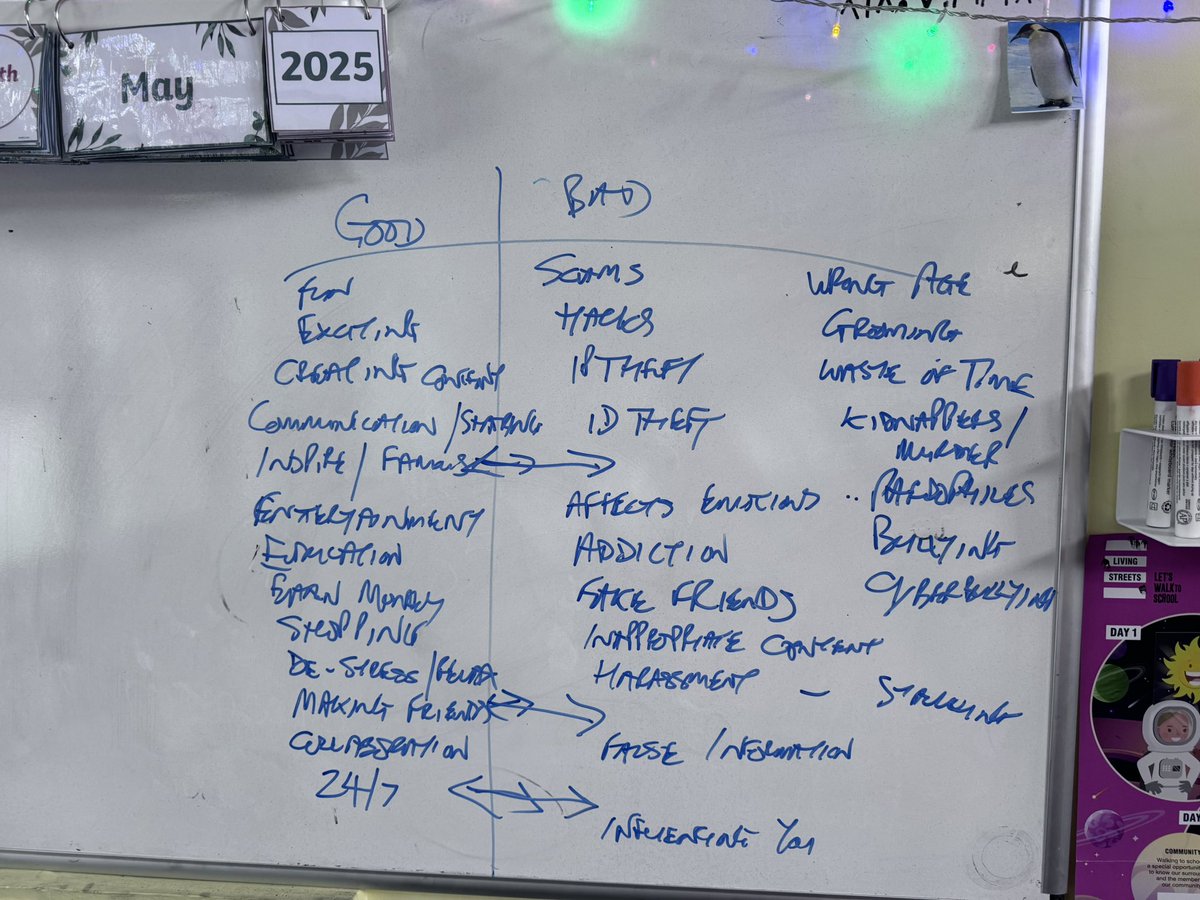 th
May
2025
GOOD
BAD
FUN
EXCITING
CREATING CONTENT
COMMUNICATION / SHARING
INSPIRE / FAMOUS
ENTERTAINMENT
EDUCATION
EARN MONEY
SHOPPING
DE-STRESS / RELAX
MAKING FRIENDS
COLLABORATION
24/7
SCAMS
HACKS
IP THEFT
ID THEFT
AFFECTS EMOTIONS
ADDICTION
FAKE FRIENDS
INAPPROPRIATE CONTENT
HARASSMENT – STALKING
FALSE INFORMATION
INFLUENCING YOU
WRONG AGE
GROOMING
WASTE OF TIME
KIDNAPPERS /
MURDER
PAEDOPHILES
BULLYING
CYBERBULLYING
LIVING
STREETS
LET'S
WALK TO
SCHOOL
DAY 1
DAY
COMMUNITY
Walking to scho
a special opportuni
to know our surrou
and the member
our community